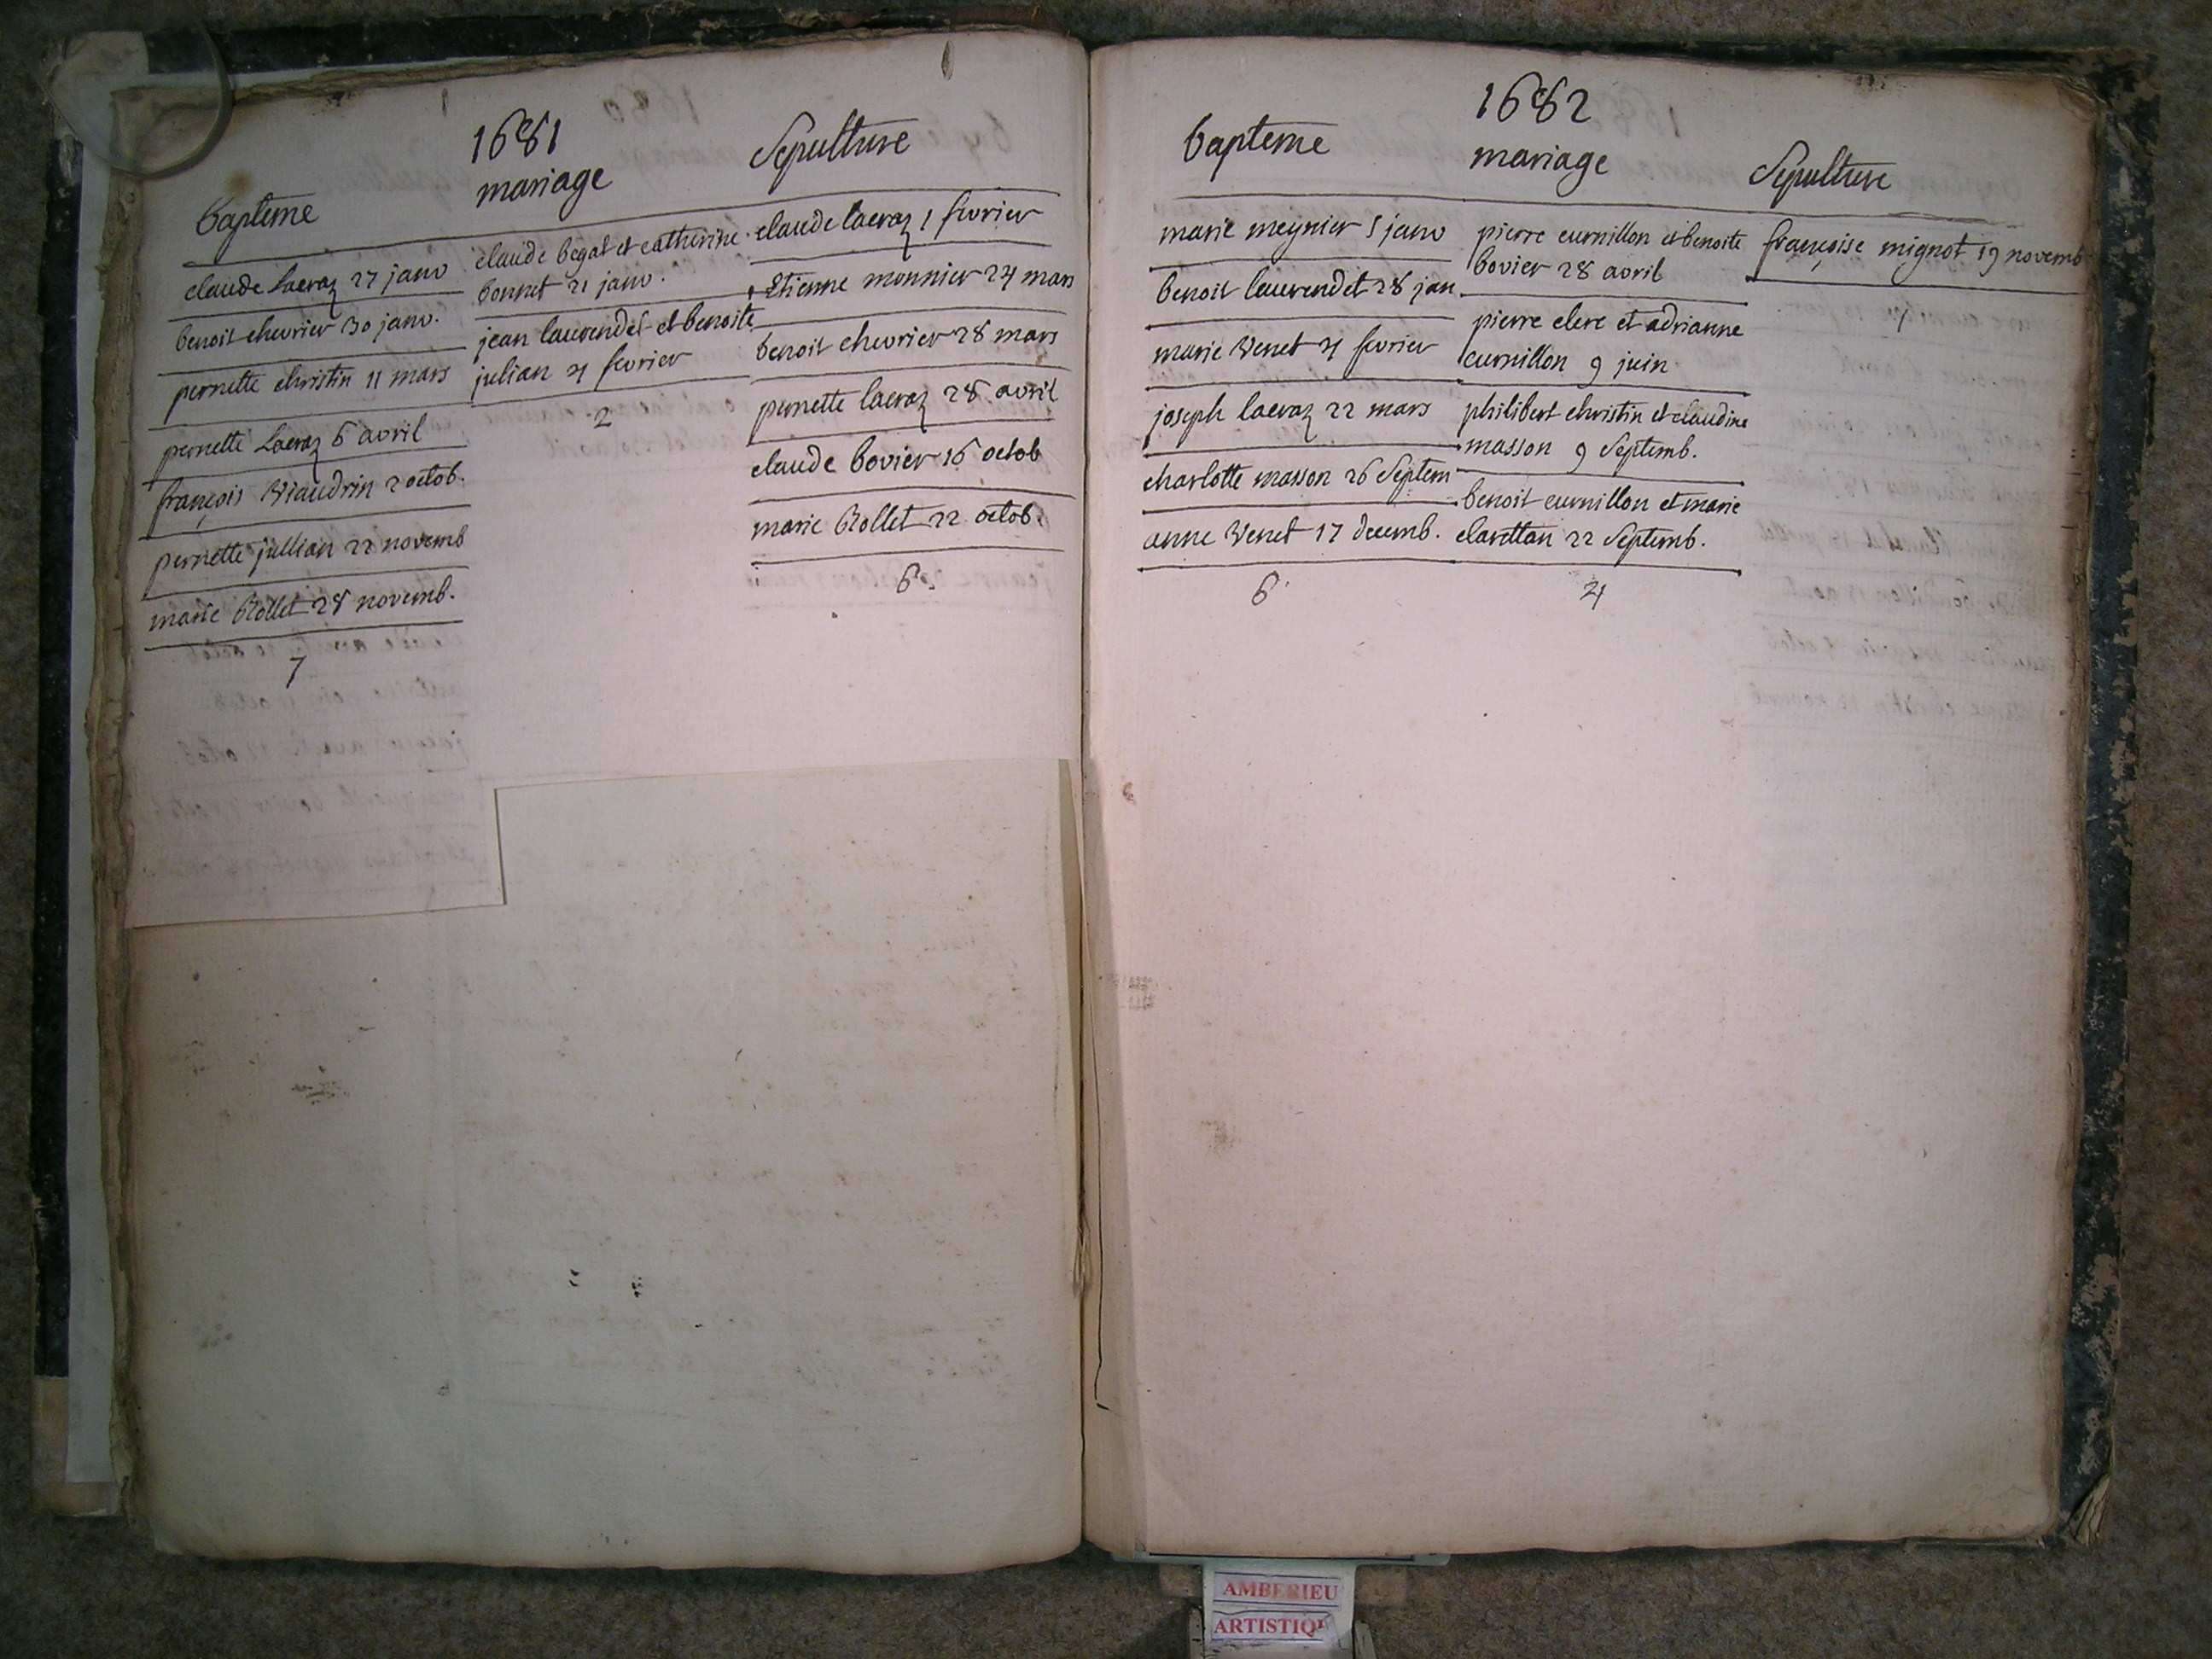 1681
bapteme
mariage
Sepulture
claude Lacraz 27 janv
benoit chevrier 30 janv.
pernette christin 11 mars
pernette Lacraz 6 avril
françois Viaudrin 2 octob.
pernette jullian 22 novemb
marie Rollet 28 novemb.
7
claude begat et catherine
bonnet 21 janv.
jean laurendet et benoite
julian 4 fevrier
2
claude lacraz 1 fevrier
Etienne monnier 24 mars
benoit chevrier 28 mars
pernette lacraz 28 avril
claude bovier 16 octob
marie Rollet 22 octob.
6.
1682
bapteme
mariage
Sepulture
marie meynier 5 janv
benoit laurendet 28 jan
marie Venet 4 fevrier
joseph lacraz 22 mars
charlotte masson 26 Septem
anne Venet 17 decemb.
6
pierre curnillon et benoite
bovier 28 avril
pierre clerc et adrianne
curnillon 9 juin
philibert christin et claudine
masson 9 Septemb.
benoit curnillon et marie
clarettan 22 Septemb.
4
françoise mignot 19 novemb
1
AMBERIEU
ARTISTIQU